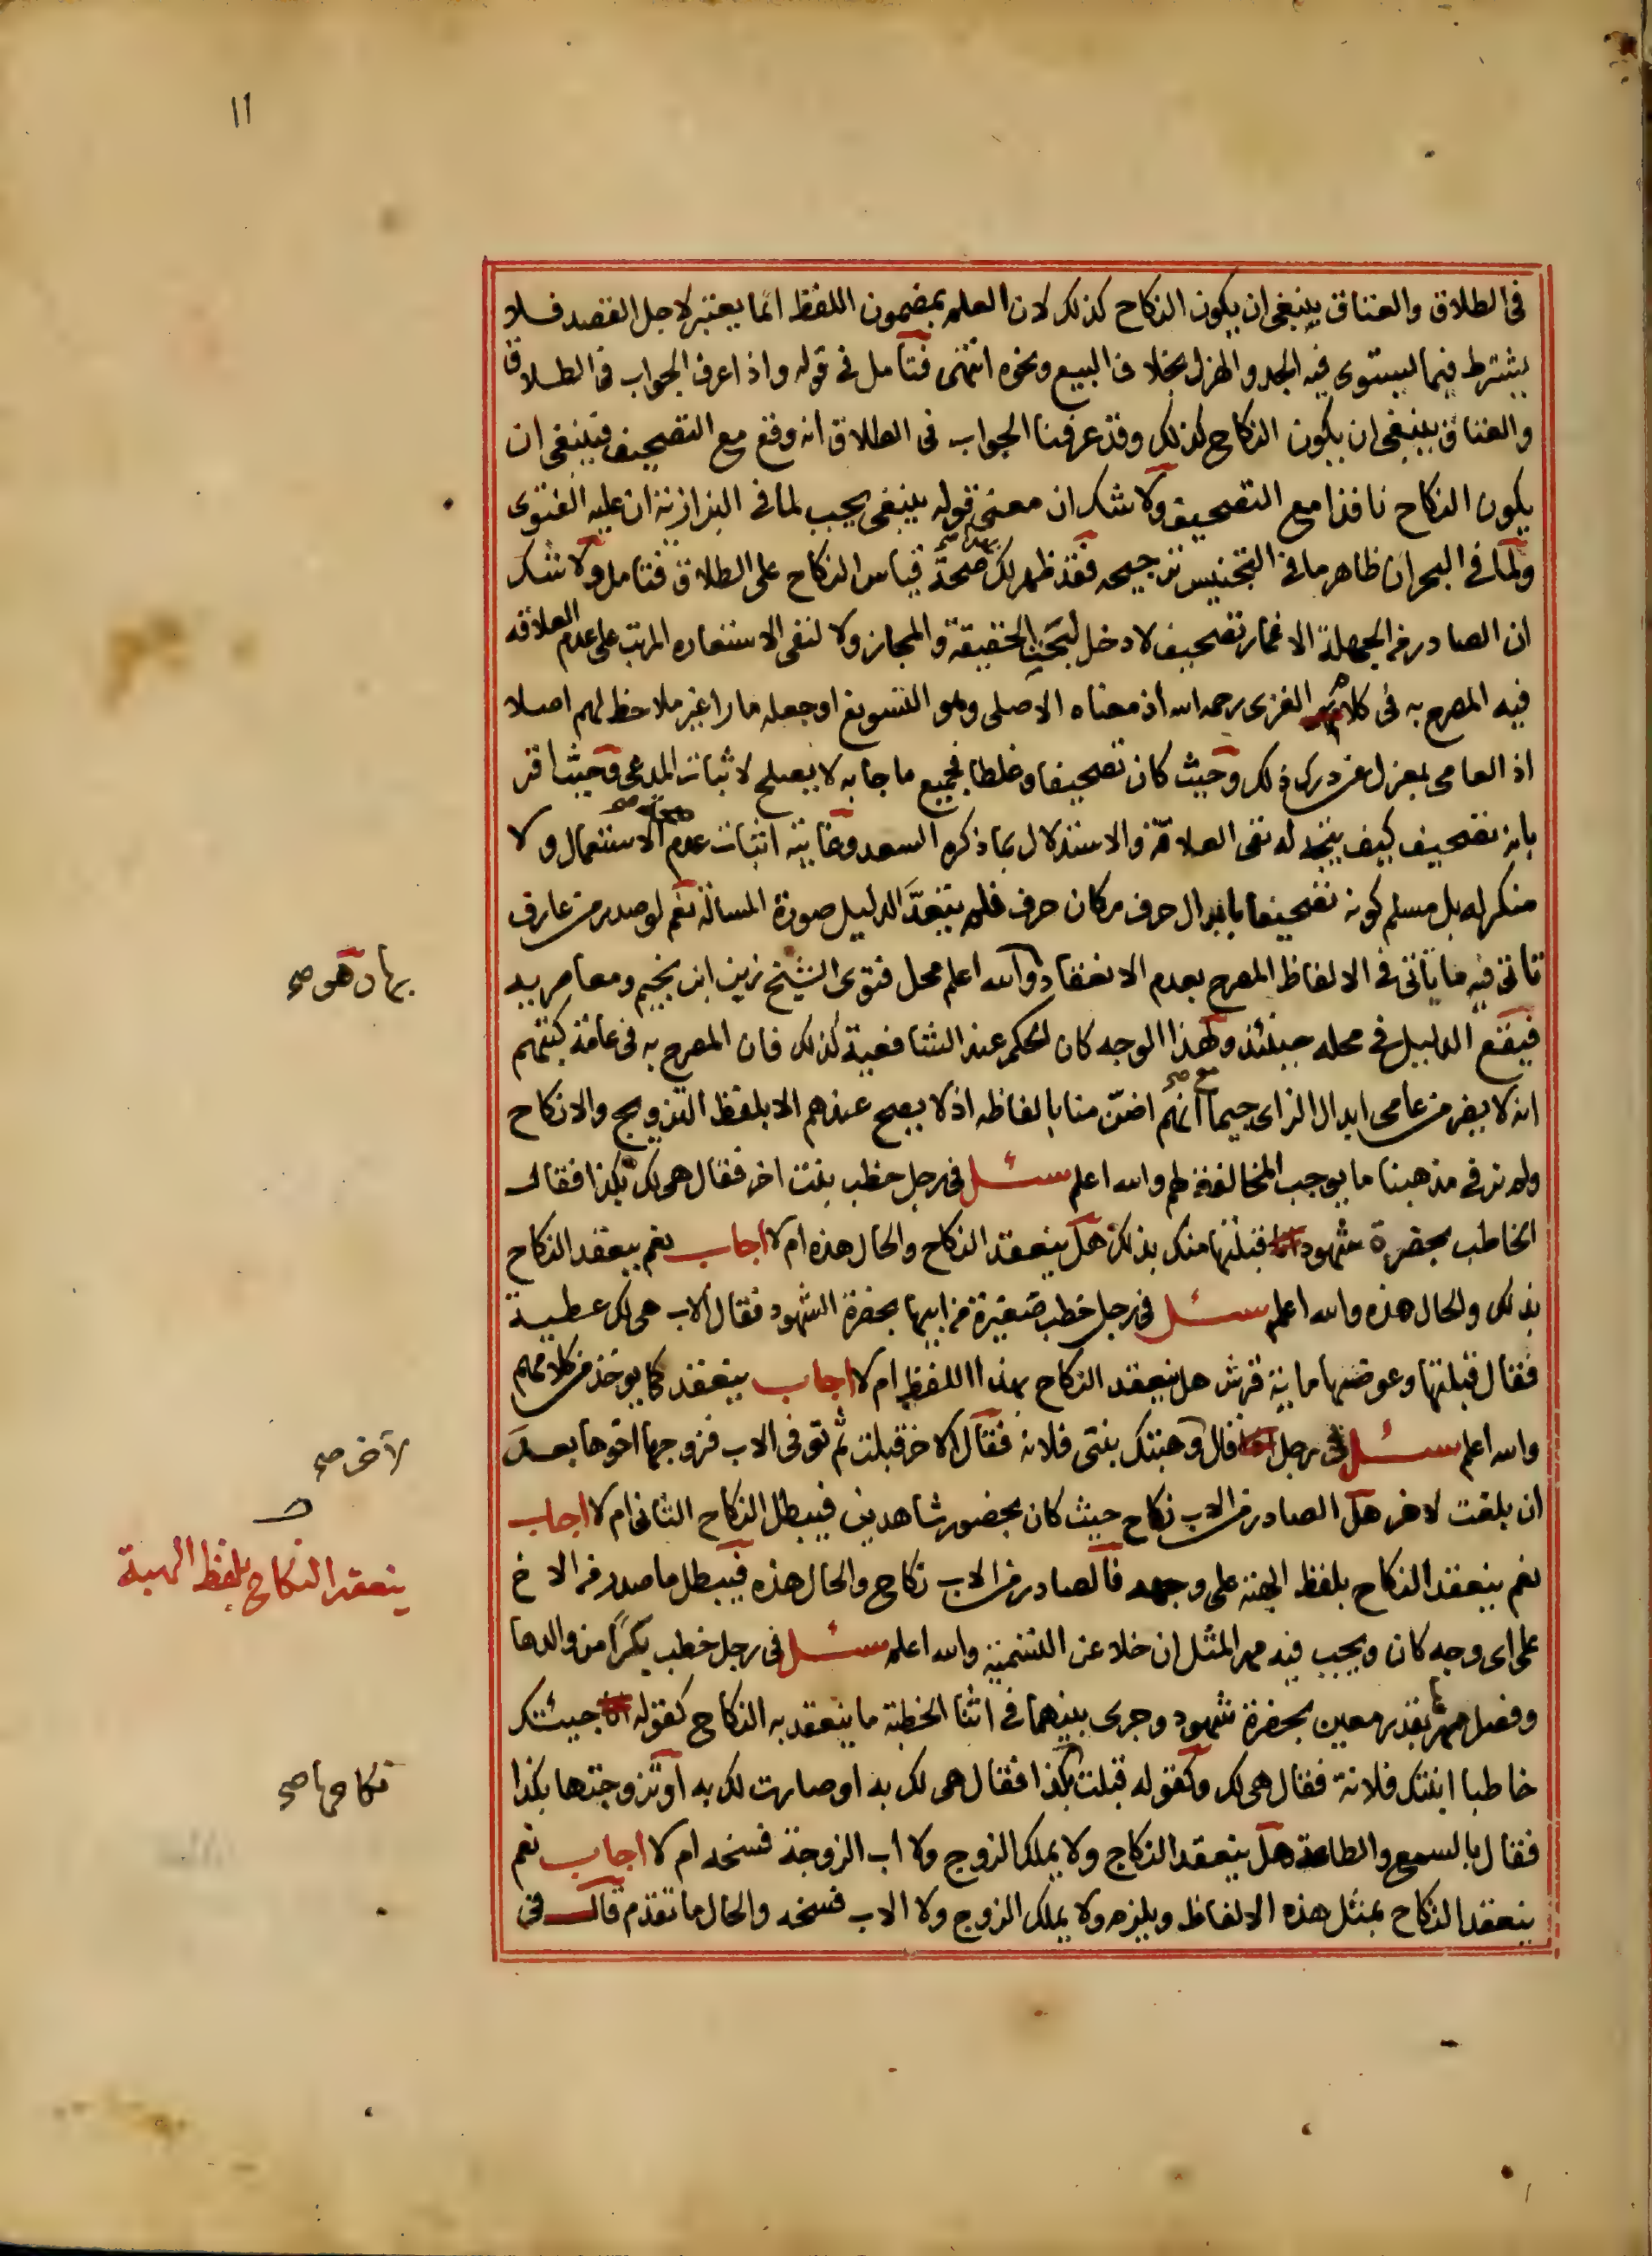 ١١
في الطلاق والعتاق ينبغي ان يكون النكاح كذلك لان العلم بمضمون اللفظ انما يعتبر لاجل القصد فلا
يشترط فيما يستوي فيه الجد والهزل بخلاف البيع ونحوه انتهى فتأمل في قوله واذا عرف الجواب في الطلاق
والعتاق ينبغي ان يكون النكاح كذلك وقد عرفنا الجواب في الطلاق انه وقع مع التصحيف فينبغي ان
يكون النكاح نافذا مع التصحيف ولا شك ان معنى قوله ينبغي يجب لما في البزازية ان عليه الفتوى
ولما في البحر ان ظاهر ما في التجنيس ترجيحه فقد ظهر لك صحة قياس النكاح على الطلاق فتامل ولا شك
ان الصادر من الجهلة الاغمار تصحيف لا دخل لبحث الحقيقة والمجاز ولا لنفي الاستعاره المرتب على عدم العلاقه
فيه المصرح به في كلام الغزي رحمه الله اذ معناه الاصلي وهو التسويغ او جعله مارا غير ملاحظ لهم اصلا
اذ العامي بمعزل عن درك ذلك وحيث كان تصحيفا وغلطا فجميع ما جا به لا يصلح لاثبات المدعى وحيث اقر
بانه تصحيف كيف يتجه له نفي العلاقة والاستدلال بما ذكره السعد وغايته اثبات عدم الاستعمال ولا
منكر له بل مسلم كونه تصحيفا بابدال حرف مكان حرف فلم يتعد الدليل صورة المسالة نعم لو صدر من عارف
تاتى فيه ما ياتي في الالفاظ المصرح بعدم الانعقاد والله اعلم محل فتوى الشيخ زين ابن نجيم ومعاصريه
بها وهو صح
فيقع الدليل في محله حينئذ ولهذا الوجه كان الحكم عند الشافعية كذلك فان المصرح به في عامة كتبهم
انه لا يضر من عامي ابدال الزاي جيما مع صح انهم اضن منا بالفاظه اذ لا يصح عندهم الا بلفظ التزويج والانكاح
ولم نر في مذهبنا ما يوجب المخالفة لهم والله اعلم سئل في رجل خطب بنت اخر فقال هي لك بكذا فقال
الخاطب بحضرة شهود قبلتها منك بذلك هل ينعقد النكاح والحال هذه ام لا اجاب نعم ينعقد النكاح
بذلك والحال هذه والله اعلم سئل في رجل خطب صغيرة من ابيها بحضرة الشهود فقال الاب هي لك عطية
فقال قبلتها وعوضتها ماية قرش هل ينعقد النكاح بهذا اللفظ ام لا اجاب ينعقد كما يوخذ من كلامهم
والله اعلم سئل في رجل قال وهبتك بنتي فلانه فقال الاخر قبلت ثم توفى الاب فزوجها اخوها بعد
لآخر صح
ان بلغت لاخر هل الصادر من الاب نكاح حيث كان بحضور شاهدين فيبطل النكاح الثاني ام لا اجاب
نعم ينعقد النكاح بلفظ الهبة على وجهه فالصادر من الاب نكاح والحال هذه فيبطل ما صدر من الاخ
ينعقد النكاح بلفظ الهبة
على اي وجه كان ويجب فيه مهر المثل ان خلا عن التسمية والله اعلم سئل في رجل خطب بكرا من والدها
وفصل مهرها بقدر معين بحضرة شهود وجرى بينهما في اثنا الخطبة ما ينعقد به النكاح كقوله جيئتك
خاطبا ابنتك فلانة فقال هي لك وكقوله قبلت بكذا فقال هي لك به او صارت لك به او تزوجتها بكذا
نكاحها صح
فقال بالسمع والطاعة هل ينعقد النكاح ولا يملك الزوج ولا اب الزوجة فسخه ام لا اجاب نعم
ينعقد النكاح بمثل هذه الالفاظ ويلزم ولا يملك الزوج ولا الاب فسخه والحال ما تقدم قال في